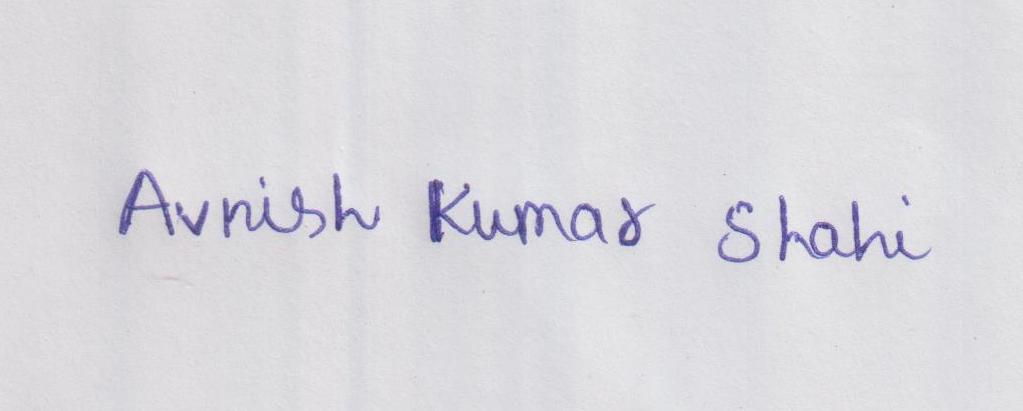 Avnish Kumar Shahi